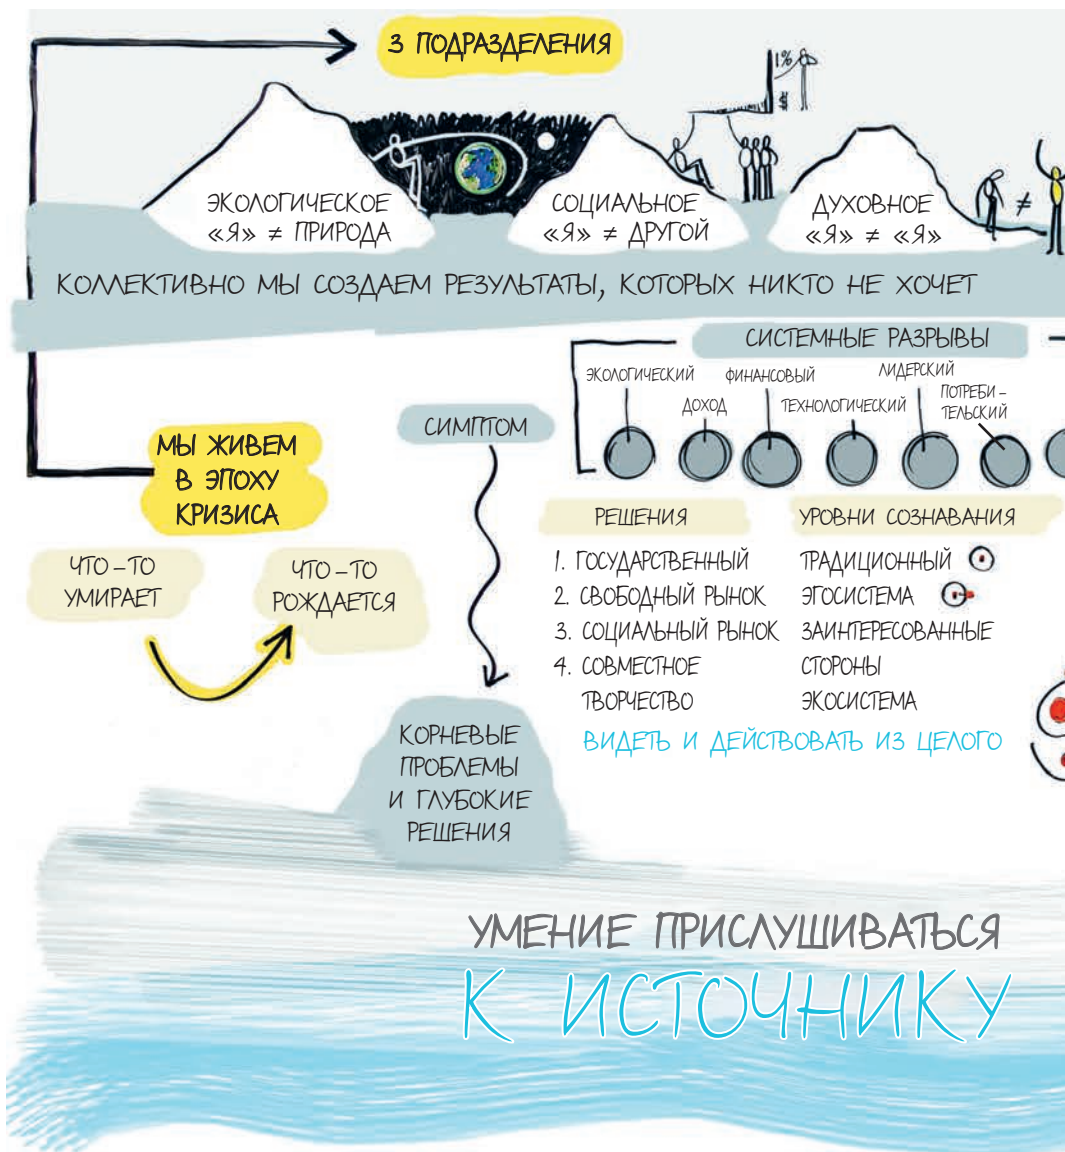 3 ПОДРАЗДЕЛЕНИЯ
1%
ЭКОЛОГИЧЕСКОЕ
«Я» ≠ ПРИРОДА
СОЦИАЛЬНОЕ
«Я» ≠ ДРУГОЙ
ДУХОВНОЕ
«Я» ≠ «Я»
≠
КОЛЛЕКТИВНО МЫ СОЗДАЕМ РЕЗУЛЬТАТЫ, КОТОРЫХ НИКТО НЕ ХОЧЕТ
СИСТЕМНЫЕ РАЗРЫВЫ
ЭКОЛОГИЧЕСКИЙ
ДОХОД
ФИНАНСОВЫЙ
ТЕХНОЛОГИЧЕСКИЙ
ЛИДЕРСКИЙ
ПОТРЕБИ-
ТЕЛЬСКИЙ
СИМПТОМ
МЫ ЖИВЕМ
В ЭПОХУ
КРИЗИСА
ЧТО-ТО
УМИРАЕТ
ЧТО-ТО
РОЖДАЕТСЯ
РЕШЕНИЯ
1. ГОСУДАРСТВЕННЫЙ
2. СВОБОДНЫЙ РЫНОК
3. СОЦИАЛЬНЫЙ РЫНОК
4. СОВМЕСТНОЕ
ТВОРЧЕСТВО
УРОВНИ СОЗНАВАНИЯ
ТРАДИЦИОННЫЙ
ЭГОСИСТЕМА
ЗАИНТЕРЕСОВАННЫЕ
СТОРОНЫ
ЭКОСИСТЕМА
ВИДЕТЬ И ДЕЙСТВОВАТЬ ИЗ ЦЕЛОГО
КОРНЕВЫЕ
ПРОБЛЕМЫ
И ГЛУБОКИЕ
РЕШЕНИЯ
УМЕНИЕ ПРИСЛУШИВАТЬСЯ
К ИСТОЧНИКУ